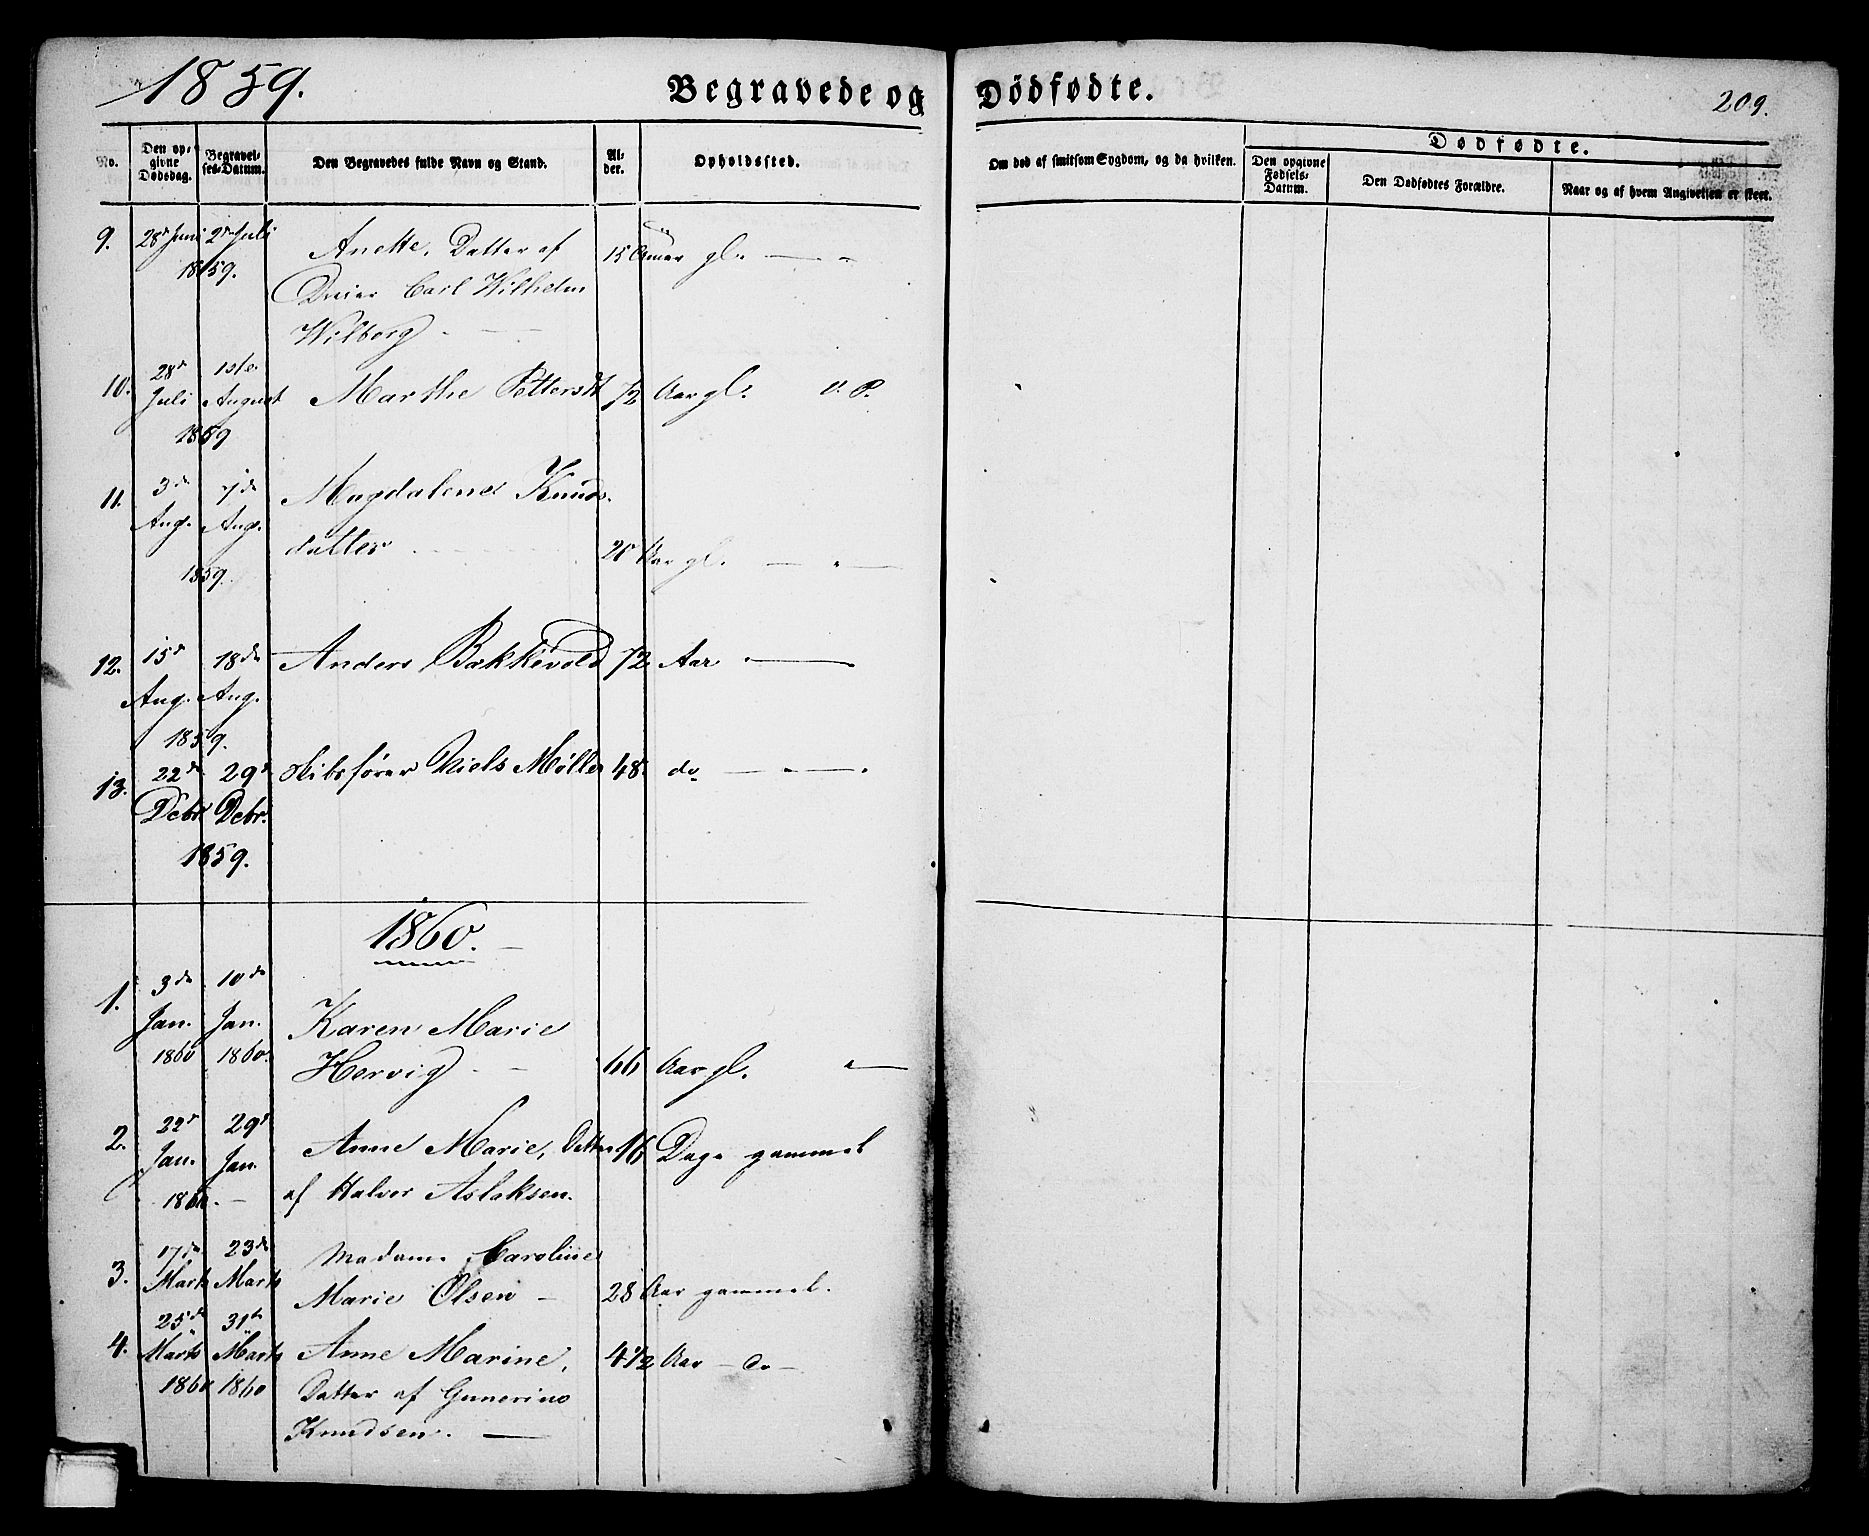 1859.
Begravede og Dødfødte.
209.
No.
Den op-
givne
Dødsdag.
Begravel-
ses-Datum.
Den Begravedes fulde Navn og Stand.
Al-
der.
Opholdssted.
Om død af smitsom Sygdom, og da hvilken.
Dødfødte.
Den opgivne
Fødsels-
Datum.
Den Dødfødtes Forældre.
Naar og af hvem Angivelsen er skeet.
9. 28de Juni 2den Juli Anette, Datter af 15 gl.
1859.
Carl Wilhelm
Wilborg
10. 28de 1ste Marthe Pettersdt 72 Aar gl.
Juli August
1859
11. 3de 7de Magdalene Knuds-
Aug. Aug.
datter Aar gl.
1859.
12. 15de 18de Anders Bækkevold 72 Aar
Aug. Aug.
1859.
13. 22de 29de Skibsfører Niels Møller 48 do
Debr. Debr.
1859.
1860.
1. 3de 10de
Jan. Jan. Karen Marie
1860 1860. Hervig 66 Aar gl.
2. 22de 29de Anne Marie, Datter 16 Dage gammel
Jan. Jan.
1860. af Halvor Aslaksen.
3. 17de 23de Madame Caroline
Marts Marts Marie Olsen 28 Aar gammel.
4. 25de 31te
Marts Marts Anne Marine, 4 1/2 Aar do
1860 1860 Datter af Gunerius
Knudsen.